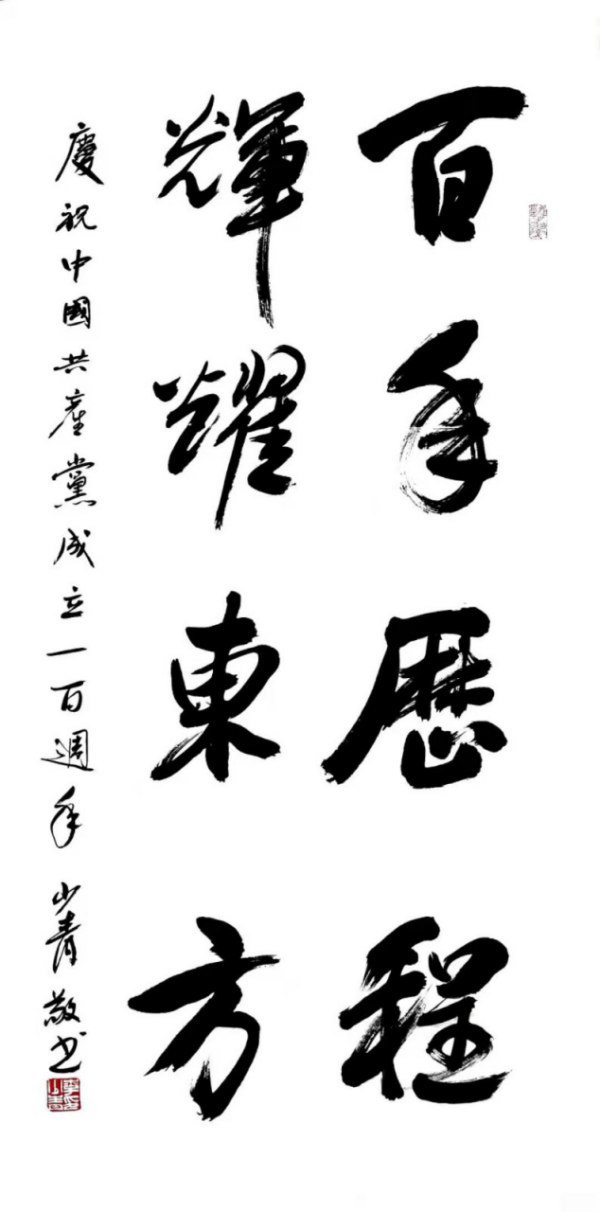 百年歷程
輝耀東方
慶祝中國共產黨成立一百週年 少青敬书